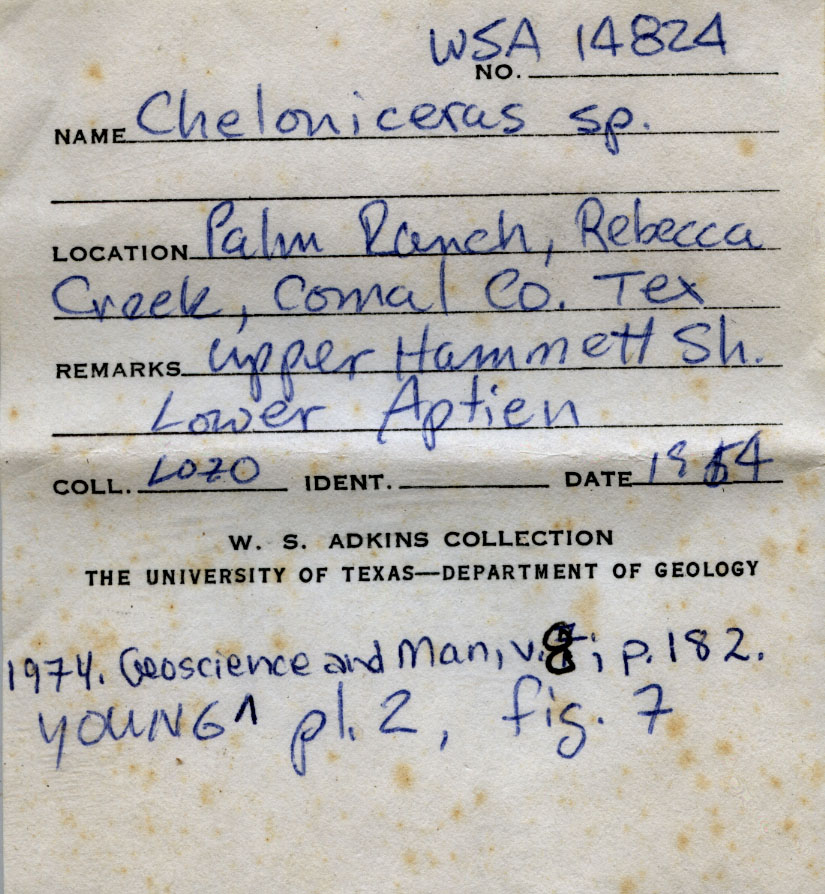 WSA 14824
NO.
NAME Cheloniceras sp.
LOCATION Palm Ranch, Rebecca
Creek, Comal Co. Tex
REMARKS Upper Hammett Sh.
Lower Aptien
COLL. LOZO IDENT. DATE 1954
W. S. ADKINS COLLECTION
THE UNIVERSITY OF TEXAS—DEPARTMENT OF GEOLOGY
1974. Geoscience and Man, v. 8; p. 182.
YOUNG ^ pl. 2, fig. 7